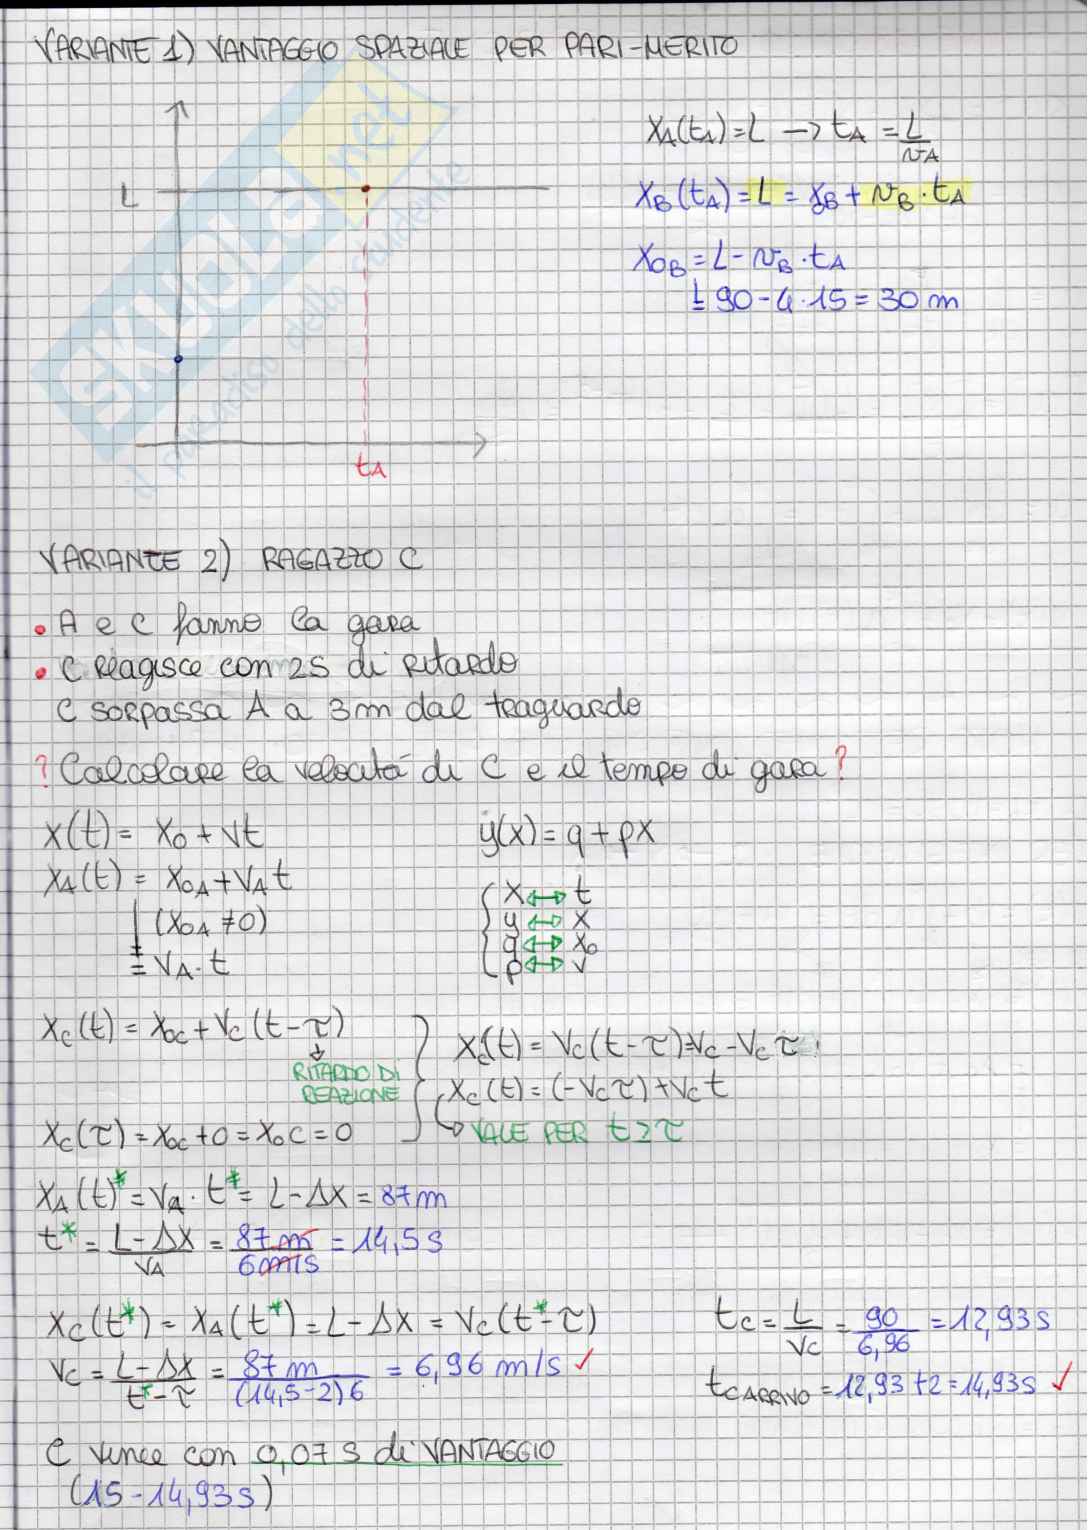 VARIANTE 1) VANTAGGIO SPAZIALE PER PARI-MERITO
XA(tA)=L → tA = L/vA
XB(tA)=L= xB + vB·tA
X0B = L - vB·tA
= 90-4·15 = 30 m
L
tA
SKUOLA.net
il paradiso dello studente
VARIANTE 2) RAGAZZO C
• A e C fanno la gara
• C reagisce con 2s di ritardo
C sorpassa A a 3m dal traguardo
? Calcolare la velocità di C e il tempo di gara?
x(t) = x0 + vt
y(x) = q + px
XA(t) = X0A + VA t
(X0A ≠ 0)
= VA · t
x ⇔ t
y ⇔ x
q ⇔ x0
p ⇔ v
Xc(t) = X0c + Vc (t-τ)
RITARDO DI
REAZIONE
Xc(τ) = X0c + 0 = X0C = 0
Xc(t) = Vc(t-τ)=Vc - Vc τ
Xc(t) = (-Vcτ) + Vc t
VALE PER t ≥ τ
XA(t)* = VA · t* = L-Δx = 87 m
t* = L-Δx/VA = 87 m/6 m/s = 14,5 s
Xc(t*) = XA(t*) = L-Δx = Vc(t*-τ)
Vc = L-Δx/t*-τ = 87 m/(14,5-2)6 = 6,96 m/s ✓
tc = L/Vc = 90/6,96 = 12,93 s
tcARRIVO = 12,93+2 = 14,93s ✓
C vince con 0,07 s di VANTAGGIO
(15 - 14,93 s)